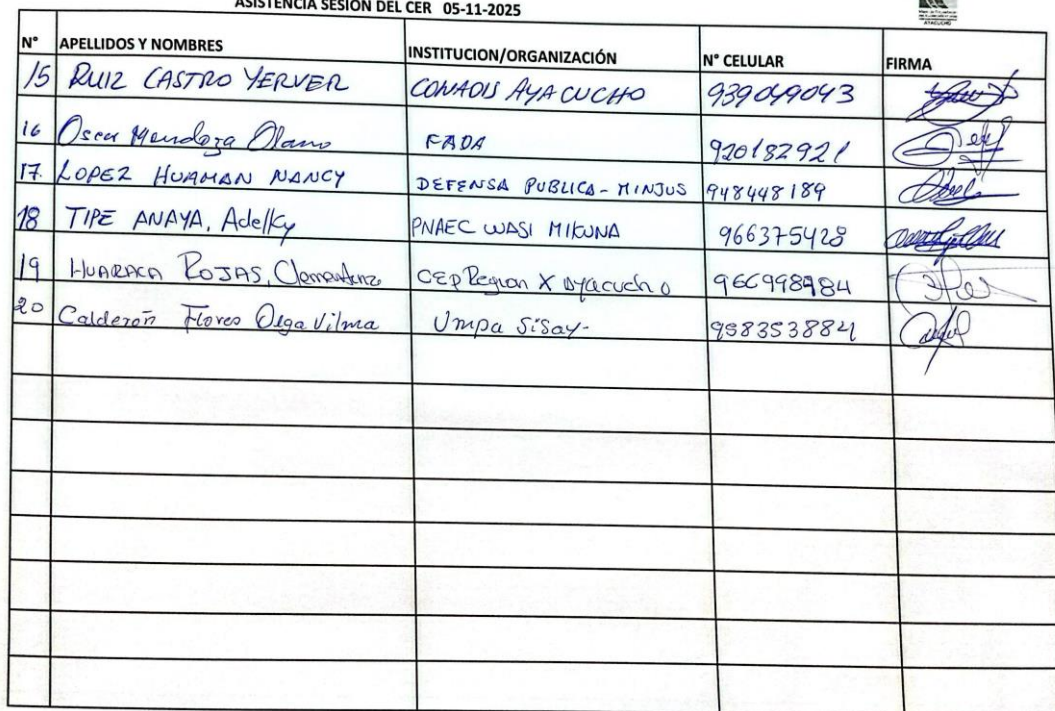 ASISTENCIA SESIÓN DEL CER 05-11-2025
AYACUCHO
N° APELLIDOS Y NOMBRES INSTITUCION/ORGANIZACIÓN N° CELULAR FIRMA
15 RUIZ CASTRO YERVER CONADIS AYACUCHO 939049043
16 Oscar Mendoza Olano FADA 920182921
17. LOPEZ HUAMAN NANCY DEFENSA PUBLICA - MINJUS 948448189
18 TIPE ANAYA, Adelky PNAEC WASI MIKUNA 966375428
19 HUARACA ROJAS, CEP Region X Ayacucho 966998984
20 Calderón Flores Olga Vilma Umpa Sisay- 958353884